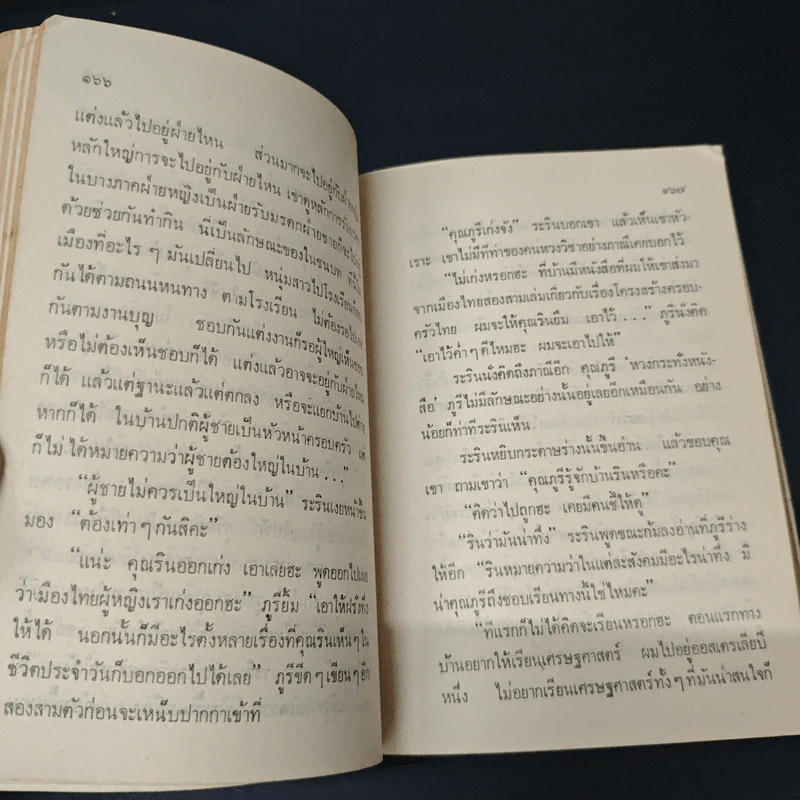 ๑๖๖
แต่งแล้วไปอยู่ฝ่ายไหน ส่วนมากจะไปอยู่กับ
หลักใหญ่การจะไปอยู่กับฝ่ายไหน เขาดูหลักการ
ในบางภาคฝ่ายหญิงเป็นฝ่ายรับมรดกฝ่ายชายก็จะ
ด้วยช่วยกันทำกิน นี่เป็นลักษณะของในชนบท
เมืองที่อะไร ๆ มันเปลี่ยนไป หนุ่มสาวไปโรงเรียน
กันได้ตามถนนหนทาง ตามโรงเรียน ไม่ต้องรอไป
กันตามงานบุญ ชอบกันแต่งงานก็รอผู้ใหญ่เห็นชอบ
หรือไม่ต้องเห็นชอบก็ได้ แต่งแล้วอาจจะอยู่กับฝ่ายไหน
ก็ได้ แล้วแต่ฐานะแล้วแต่ตกลง หรือจะแยกบ้านไป
หากก็ได้ ในบ้านปกติผู้ชายเป็นหัวหน้าครอบครัว แต่
ก็ไม่ได้หมายความว่าผู้ชายต้องใหญ่ในบ้าน . . .”
“ผู้ชายไม่ควรเป็นใหญ่ในบ้าน” ระรินเงยหน้าขึ้น
มอง “ต้องเท่า ๆ กันสิคะ”
“แน่ะ คุณรินออกเก่ง เอาเลยฮะ พูดออกไปเลย
ว่าเมืองไทยผู้หญิงเราเก่งออกฮะ” ภูรียิ้ม “เอาให้ฝรั่งทึ่ง
ให้ได้ นอกนั้นก็มีอะไรตั้งหลายเรื่องที่คุณรินเห็น ๆ ใน
ชีวิตประจำวันก็บอกออกไปได้เลย” ภูรีขีด ๆ เขียน ๆ อีก
สองสามตัวก่อนจะเหน็บปากกาเข้าที่
๑๖๗
“คุณภูรีเก่งจัง” ระรินบอกเขา แล้วเห็นเขาหัว-
เราะ เขาไม่มีทีท่าของคนหวงวิชาอย่างภาณีเคยบอกไว้
“ไม่เก่งหรอกฮะ ที่บ้านมีหนังสือที่ผมให้เขาส่งมา
จากเมืองไทยสองสามเล่มเกี่ยวกับเรื่องโครงสร้างครอบ-
ครัวไทย ผมจะให้คุณรินยืม เอาไว้ . . .” ภูรีนั่งคิด
“เอาไว้ค่ำ ๆ ดีไหมฮะ ผมจะเอาไปให้”
ระรินนั่งคิดถึงภาณีอีก คุณภูรี ‘หวงกระทั่งหนัง-
สือ’ ภูรีไม่มีลักษณะอย่างนั้นอยู่เลยอีกเหมือนกัน อย่าง
น้อยก็ท่าที่ระรินเห็น
ระรินหยิบกระดาษร่างนั้นขึ้นอ่าน แล้วขอบคุณ
เขา ถามเขาว่า “คุณภูรีรู้จักบ้านรินหรือคะ”
“คิดว่าไปถูกฮะ เคยมีคนชี้ให้ดู”
“รินว่ามันน่าทึ่ง” ระรินพูดขณะก้มลงอ่านที่ภูรีร่าง
ให้อีก “รินหมายความว่าในแต่ละสังคมมีอะไรน่าทึ่ง มิ
น่าคุณภูรีถึงชอบเรียนทางนี้ใช่ไหมคะ”
“ทีแรกก็ไม่ได้คิดจะเรียนหรอกฮะ ตอนแรกทาง
บ้านอยากให้เรียนเศรษฐศาสตร์ ผมไปอยู่ออสเตรเลียปี
หนึ่ง ไม่อยากเรียนเศรษฐศาสตร์ทั้ง ๆ ที่มันน่าสนใจก็